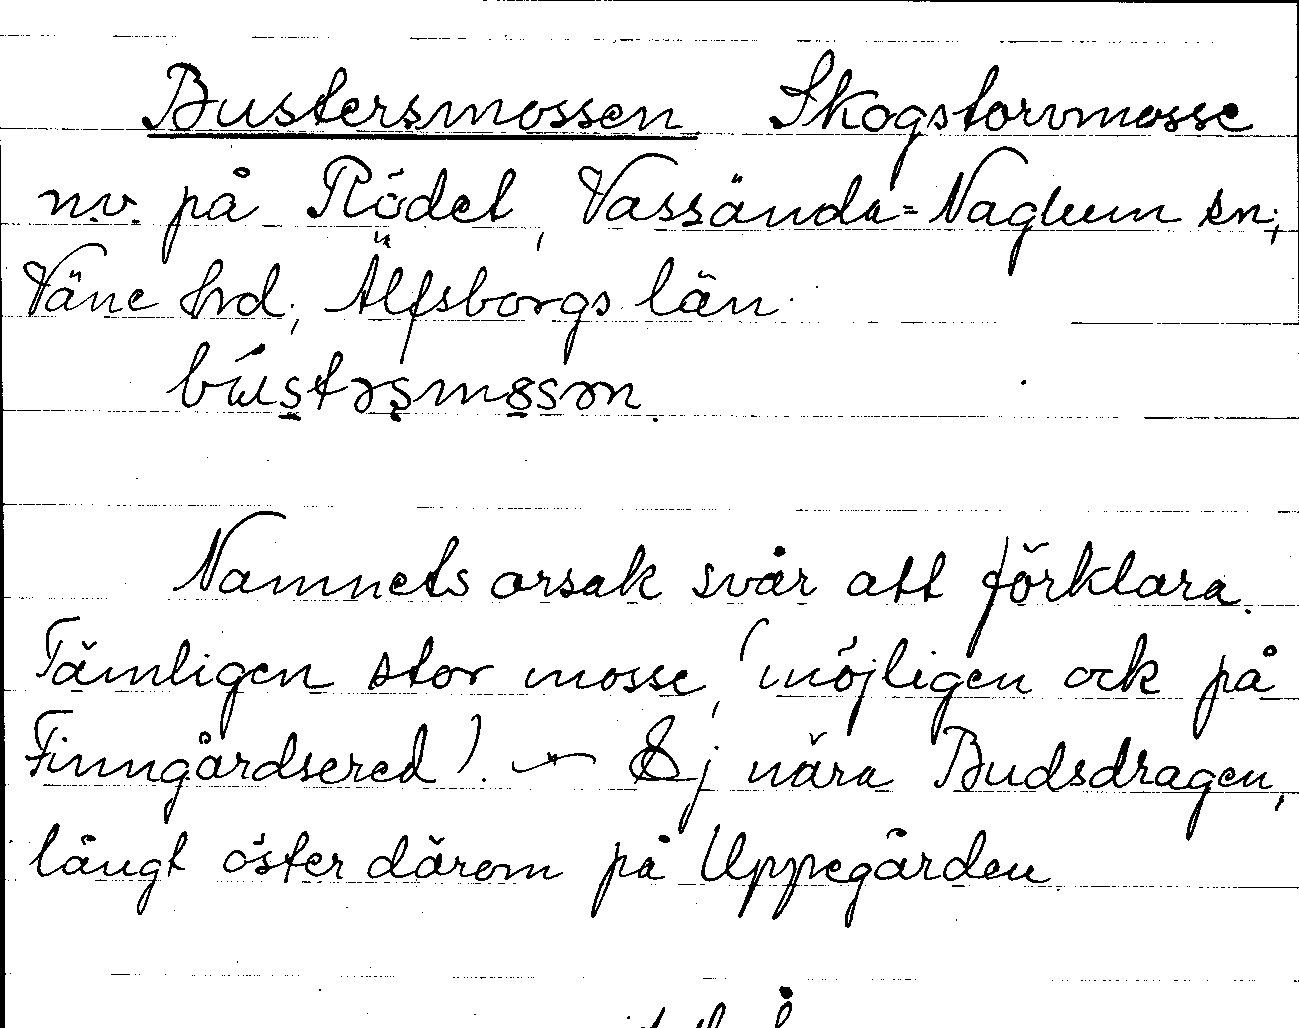 Bustersmossen Skogstorvmosse
n.v. på Rödet, Vassända=Naglum sn;
Väne hrd; Älfsborgs län.
Namnets orsak svår att förklara.
Tämligen stor mosse, (möjligen ock på
Finngårdsered). — Ej nära Budsdragen,
långt öster därom på Uppegården